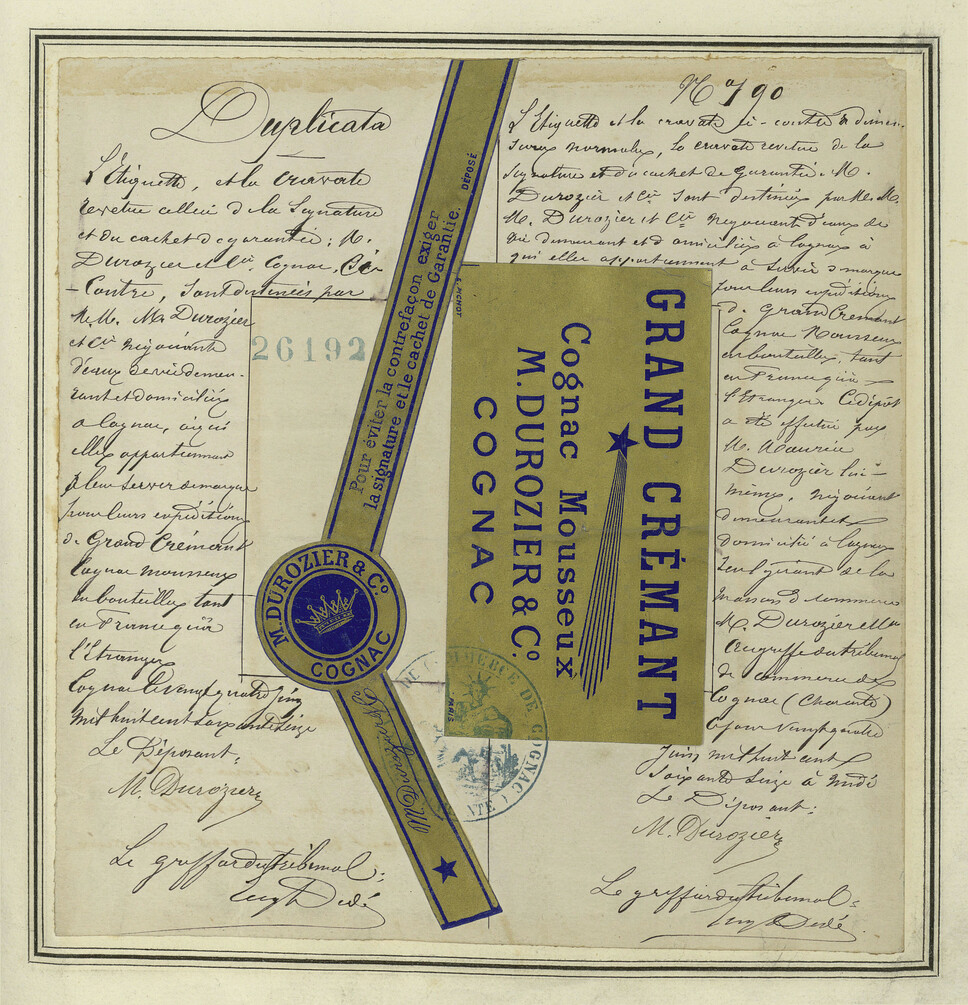 Duplicata
L'Etiquette, et la cravate
revêtue celle-ci de la Signature
et du cachet de garantie; M.
Durozier et Cie, Cognac, Ci-
-Contre, sont destinées par
M.M. M. Durozier
et Cie Négociants
d'eaux de vie demeu-
rant et domiciliés
à Cognac, à qui
elles appartiennent
à leur servir de marque
pour leurs expéditions
de Grand Crémant
Cognac mousseux
en bouteilles tant
en France qu'à
l'Etranger
Cognac le vingt quatre Juin
mil huit cent soixante seize
Le Déposant:
M. Durozier
Le greffier du tribunal:
26192
Pour éviter la contrefaçon exiger
la signature et le cachet de Garantie.
DÉPOSÉ
M. DUROZIER & Co.
COGNAC
M Durozier & Co
GRAND CRÉMANT
Cognac Mousseux
M. DUROZIER & Co.
COGNAC
PARIS
DE COMMERCE DE COGNAC
No 790
L'Etiquette et la cravate ci-contre de dimen-
sions normales, la cravate revêtue de la
signature et du cachet de garantie. M.
Durozier et Cie sont destinées par M.M.
M. Durozier et Cie Négociants d'eaux de
vie demeurant et domiciliés à Cognac à
qui elles appartiennent à servir de marque
pour leurs expéditions
de Grand Crémant
Cognac Mousseux
en bouteilles, tant
en France qu'à
l'Etranger. Ce dépôt
a été effectué par
M. Maurice
Durozier lui-
même, négociant
demeurant et
domicilié à Cognac
seul gérant de la
maison de commerce
M. Durozier et Cie
Au greffe du tribunal
de commerce de
Cognac (Charente)
ce jour vingt quatre
Juin mil huit cent
soixante seize à midi
Le Déposant:
M. Durozier
Le greffier du tribunal: